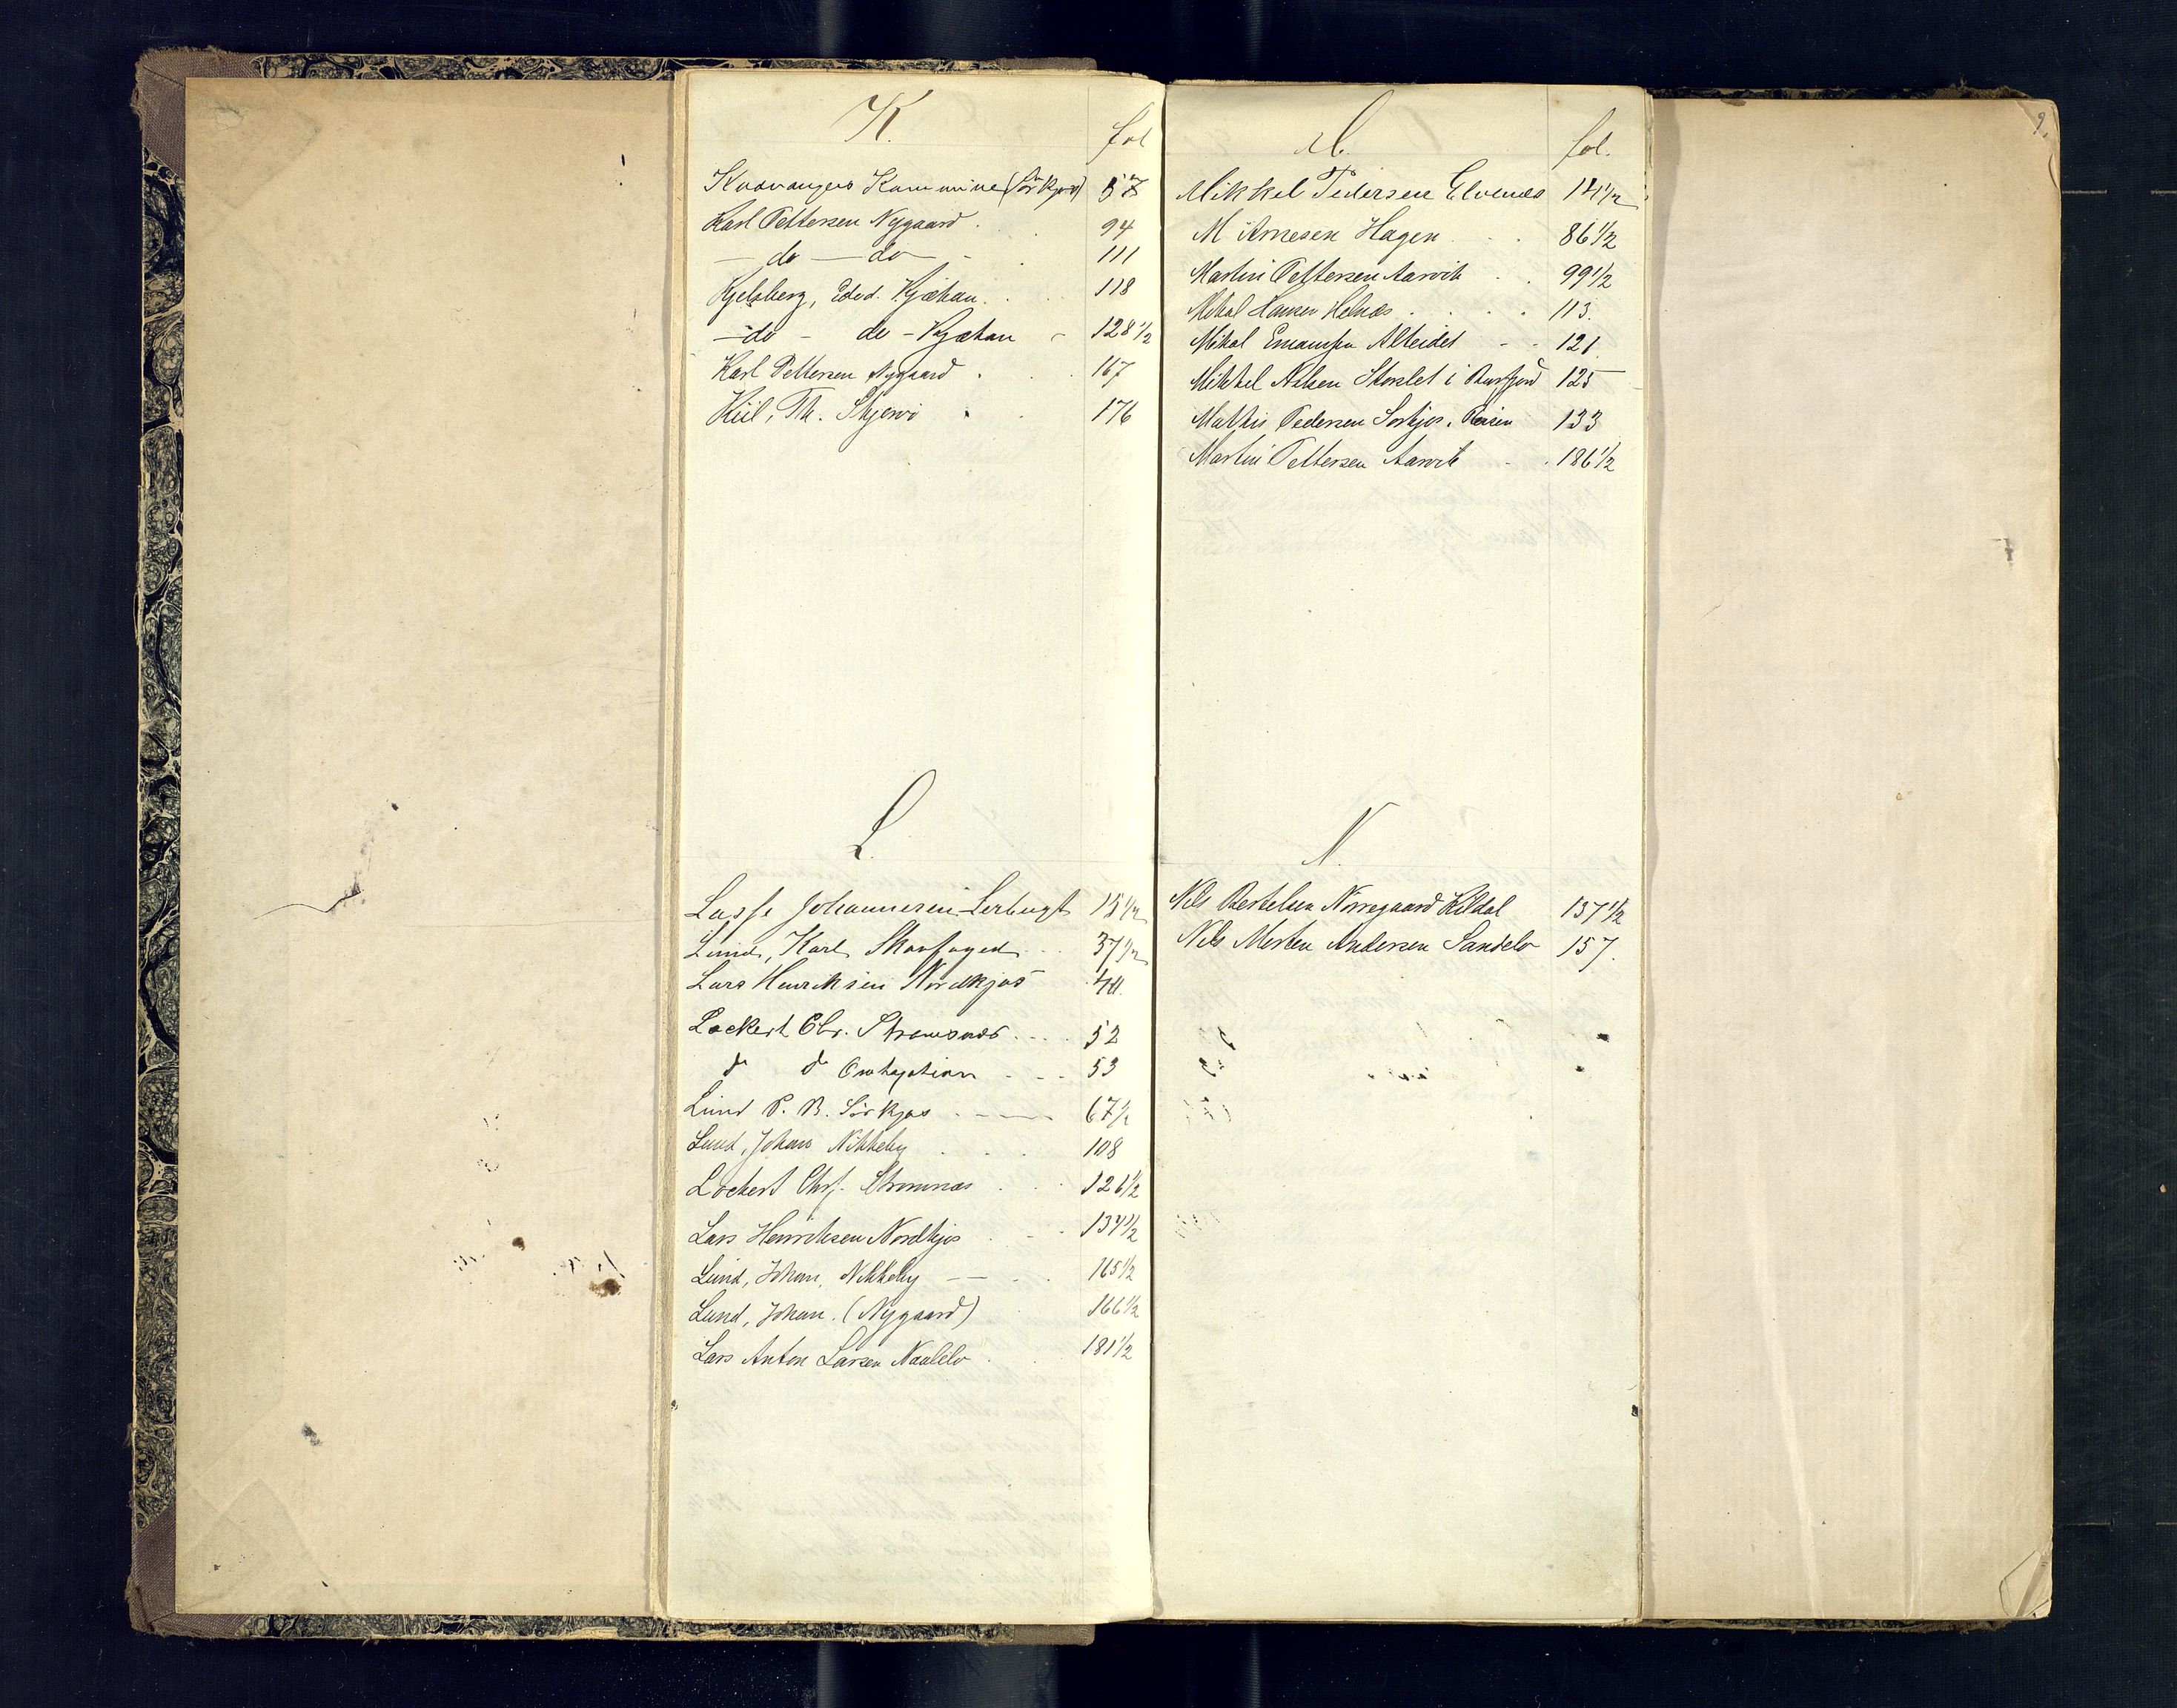 K.
fol
Kvænangens Kommune (Sørkjos) 57
Karl Pettersen Nygaard . . 94
— do — do — - . 111
Kjelsberg, Edvd. Kjækan. . 118
— do - do - Kjækan - 128 1/2
Karl Pettersen Nygaard . . 167
Kiil, Th. Skjervø . . 176
L.
Lasse Johannesen Lerbugt 15 1/2
Lund, Karl, Skovfoged . . 37 1/2
Lars Henriksen Nordkjos 44.
Lockert Chr. Strømsnæs . . . . 52
do do - - - 53
Lund P. B. Sørkjos . - — 67 1/2
Lund, Johan Nikkeby . . . 108
Lockert Chr. Strømnæs . . . 126 1/2
Lars Henriksen Nordkjos . - . 134 1/2
Lund, Johan, Nikkeby — — . . 165 1/2
Lund, Johan. (Nygaard) . 166 1/2
Lars Anton Larsen Navelelv . . 181 1/2
M.
fol.
Mikkel Pedersen Elvenæs 14 1/2
M Arnesen Hagen . . . 86 1/2
Martin Pettersen Aarvik . . 99 1/2
Mikal Hansen Helnæs . . . . 113.
Mikal Alteidet - - 121.
Mikkel Nilsen Storslet i Burfjord 125
Mathis Pedersen Sørkjos, Reisen 133
Martin Pettersen Aarvik - . 186 1/2
N.
Nils Bertelsen Norregaard Kildal 137 1/2
Nils Morten Andersen Sandelv 157.
9.